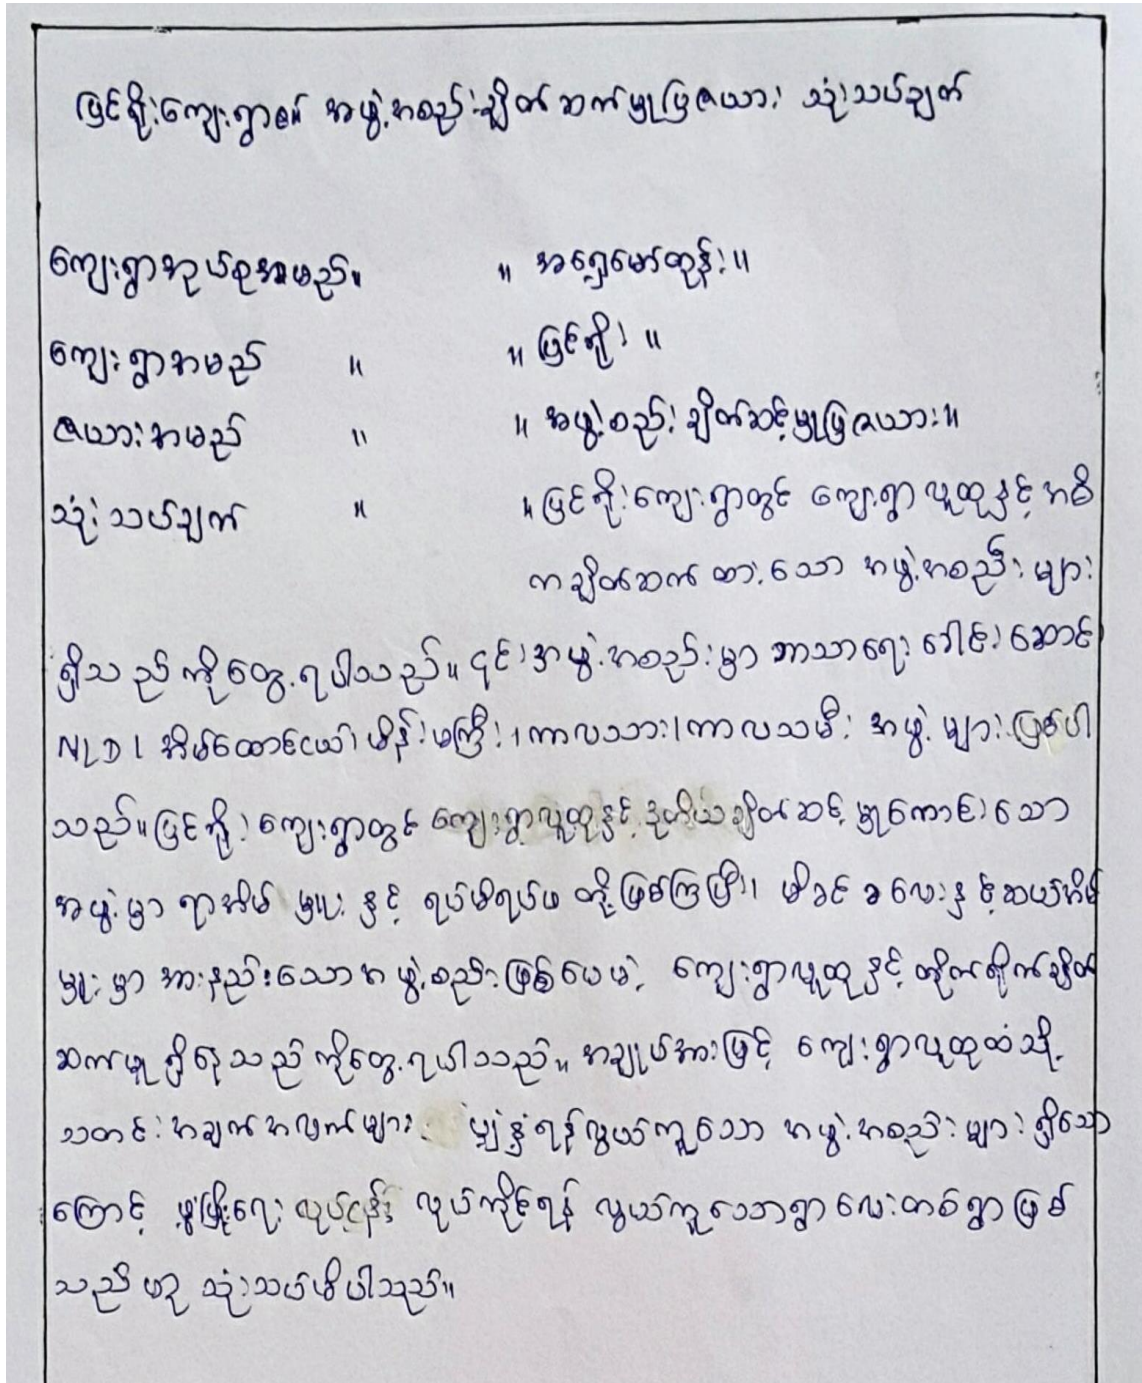 မြင်ရိုးကျေးရွာ၏ အဖွဲ့အစည်းချိတ်ဆက်မှုပြဇယား သုံးသပ်ချက်
ကျေးရွာအုပ်စုအမည်။ ။ အရှေ့မော်ထုန်း။
ကျေးရွာအမည် ။ ။ မြင်ရိုး ။
ဇယားအမည် ။ ။ အဖွဲ့စည်းချိတ်ဆင့်မှုပြဇယား။
သုံးသပ်ချက် ။ ။ မြင်ရိုးကျေးရွာတွင် ကျေးရွာလူထုနှင့် အဓိ
ကချိတ်ဆက်ထားသော အဖွဲ့အစည်းများ
ရှိသည်ကိုတွေ့ရပါသည်။ ၎င်းအဖွဲ့အစည်းမှာ ဘာသာရေးခေါင်းဆောင်
NLD၊ အိမ်ထောင်ငယ်၊ မိန်းမကြီး၊ ကာလသား၊ ကာလသမီး အဖွဲ့များဖြစ်ပါ
သည်။ မြင်ရိုးကျေးရွာတွင် ကျေးရွာလူထုနှင့် ဒုတိယချိတ်ဆင့်မှုကောင်းသော
အဖွဲ့မှာ ရာအိမ်မှူး နှင့် ရပ်မိရပ်ဖ တို့ဖြစ်ကြပြီး၊ မိခင်ခလေးနှင့်ဆယ်အိမ်
မှူးမှာ အားနည်းသောအဖွဲ့စည်းဖြစ်ပေမဲ့ ကျေးရွာလူထုနှင့် တိုက်ရိုက်ချိတ်
ဆက်မှုရှိနေသည်ကိုတွေ့ရပါသည်။ အချုပ်အားဖြင့် ကျေးရွာလူထုထံသို့
သတင်းအချက်အလက်များ မျှဲနှံရန်လွယ်ကူသော အဖွဲ့အစည်းများရှိသော
ကြောင့် ဖွံ့ဖြိုးရေးလုပ်ငန်း လုပ်ကိုင်ရန် လွယ်ကူသောရွာလေးတစ်ရွာဖြစ်
သည်ဟု သုံးသပ်မိပါသည်။